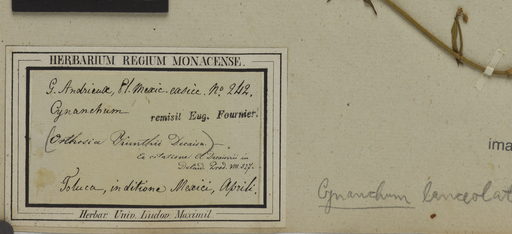 HERBARIUM REGIUM MONACENSE.
G. Andrieux, Pl. Mexic. exsicc. No. 242.
Cynanchum
remisit Eug. Fournier.
(Orthosia Decaisn.)
Ex citatione cl. Decaisnii in
Prod. VIII. 527.
Toluca, in ditione Mexici, April.
Herbar. Univ. Ludov. Maximil.
ima
Cynanchum lanceolat